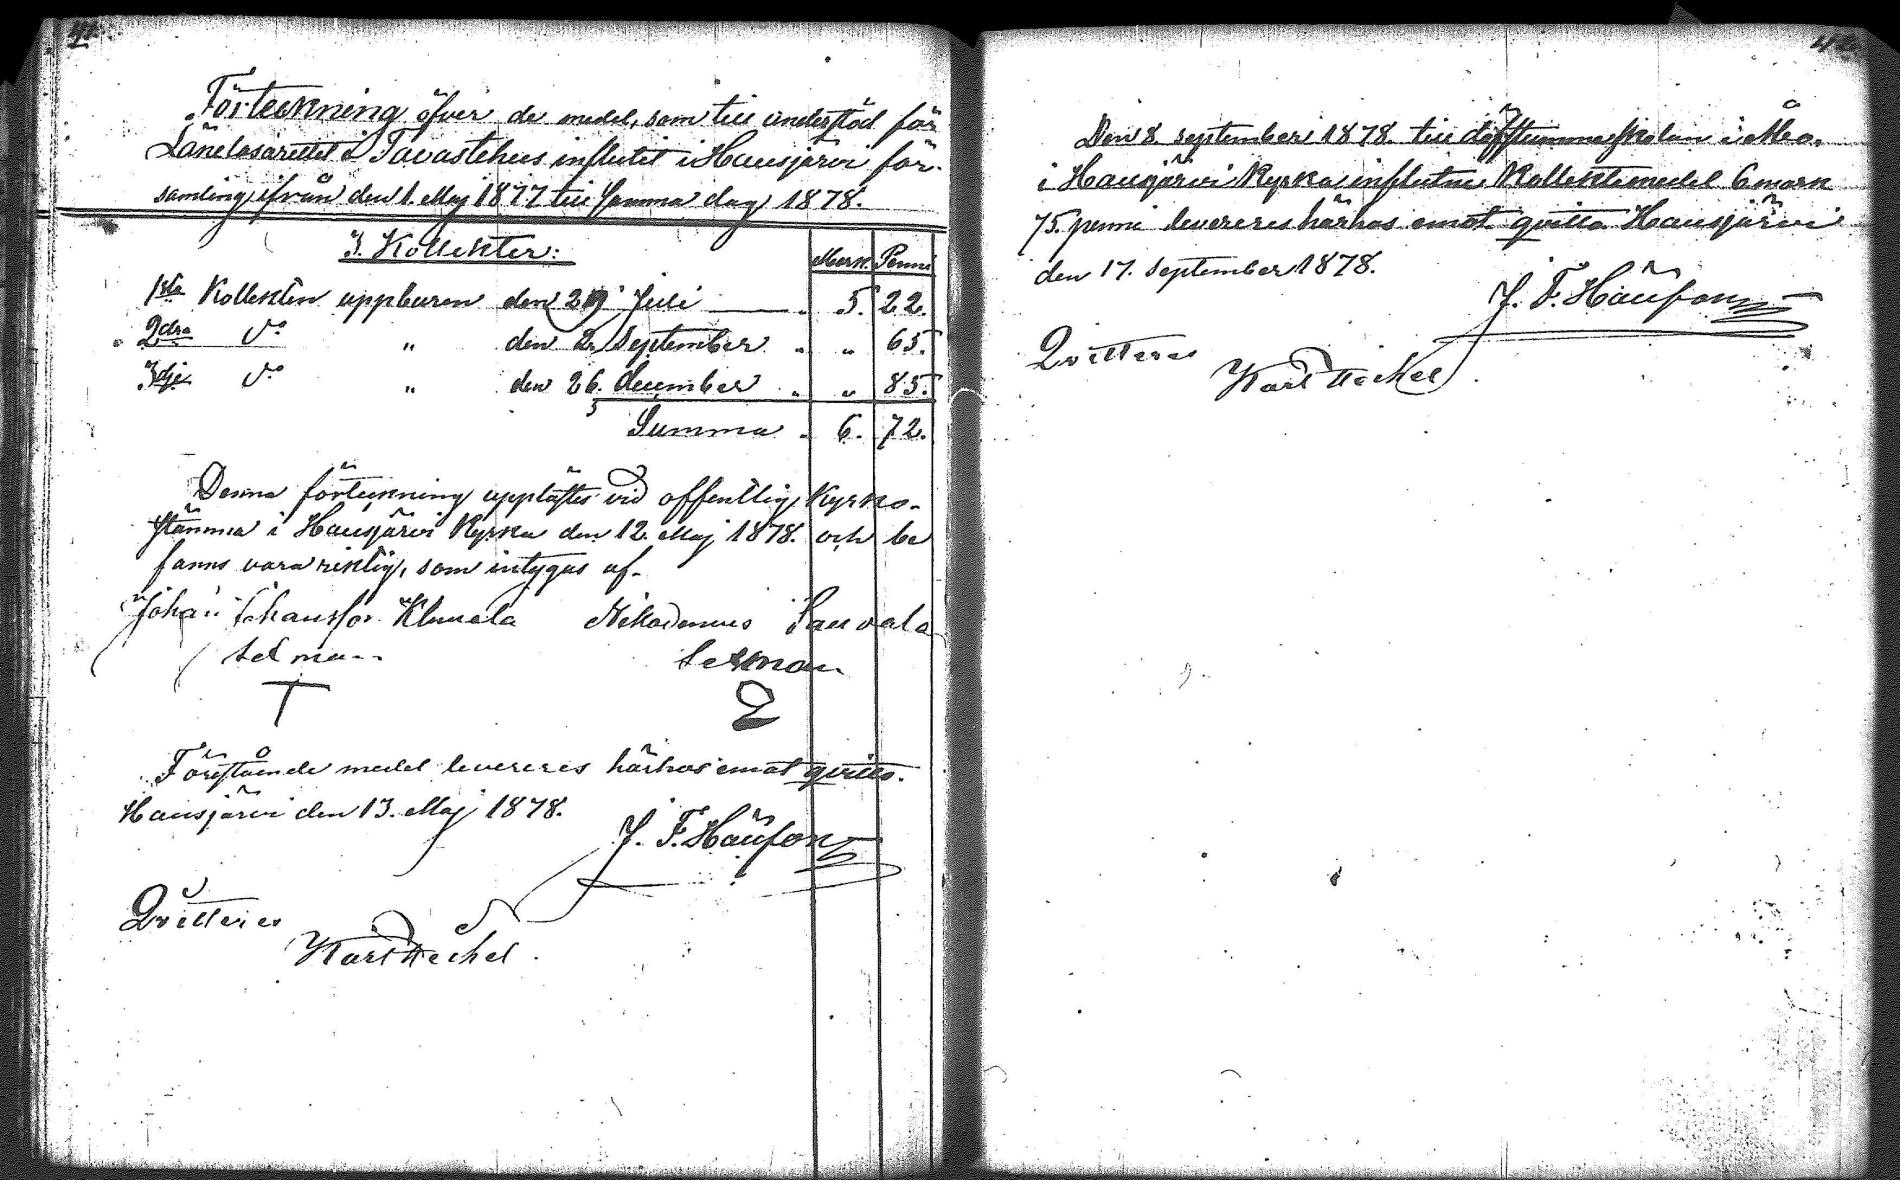 Förteckning öfver de medel, som till understöd för
Länelasarettet i Tavastehus influtit i Hausjärvi för-
samling ifrån den 1. Maj 1877 till samma dag 1878.
3. Kollekter:
Mark. Penni
1sta Kollekten uppburen den 29 Juli 5. 22.
2dra do " den 2. September " 65.
3dje do " den 26. december " 85.
Summa 6. 72.
Denna förteckning upplästes vid offentlig Kyrko-
stämma i Hausjärvi Kyrka den 12. Maj 1878. och be
fanns vara riktig, som intygas af.
Johan Johansson Nikodemus Sauvala
sexman
T 2
Förestående medel levereres härhos emot qvitto.
Hausjärvi den 13. Maj 1878.
J. F. Häufon
Qvitteres
Karl Heckel.
42
Den 8. september 1878. till döfstummeskolan i Åbo.
i Hausjärvi Kyrka influtne Kollektmedel 6 mark
75. penni levereres härhos emot qvitto Hausjärvi
den 17. September 1878.
J. F. Häufon
Qvitteres
Karl Heckel.